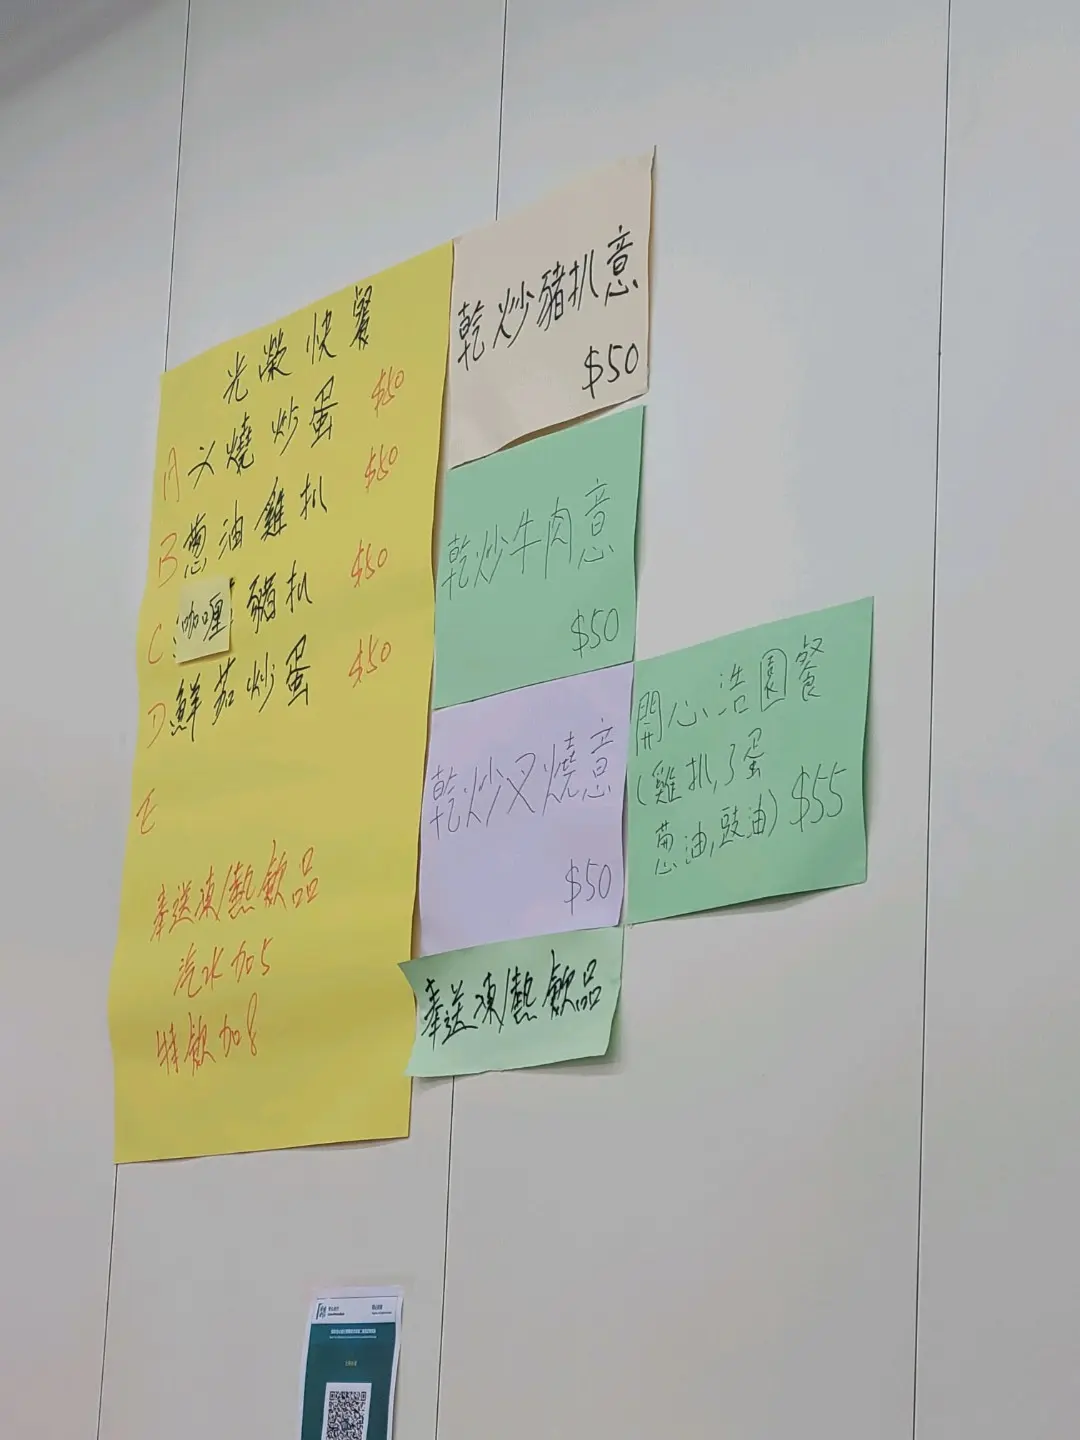 光榮快餐
A 叉燒炒蛋 $50
B 蔥油雞扒 $50
C 咖喱豬扒 $50
D 鮮茄炒蛋 $50
E
奉送凍/熱飲品
汽水加5
特飲加8
乾炒豬扒意
$50
乾炒牛肉意
$50
乾炒叉燒意
$50
奉送凍/熱飲品
開心浩園餐
(雞扒,3蛋
蔥油,豉油) $55